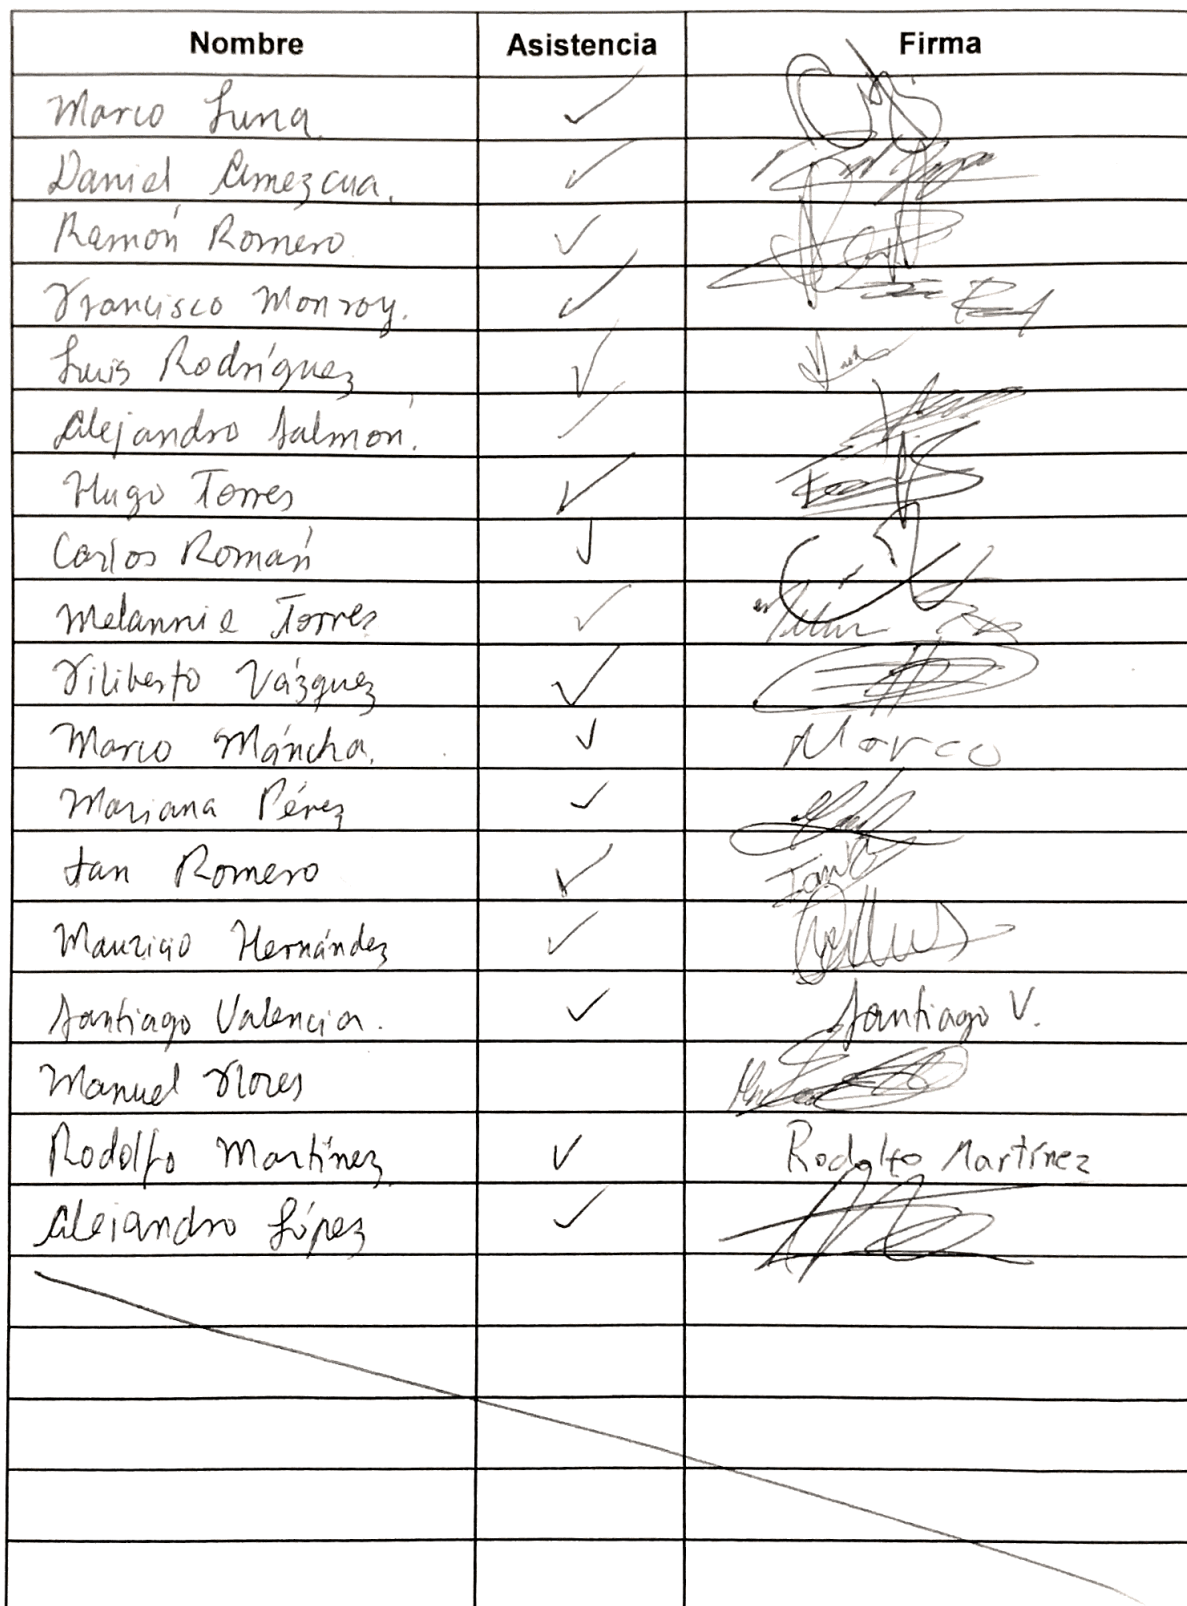 Nombre Asistencia Firma
Marco Luna. ✓
Daniel Amezcua. ✓
Ramón Romero ✓
Francisco Monroy. ✓
Luis Rodríguez ✓
Alejandro Salmón. ✓
Hugo Torres ✓
Carlos Román ✓
Melannie Torres ✓
Filiberto Vázquez ✓
Marco Máncha. ✓ Marco
Mariana Pérez ✓
Ian Romero ✓
Mauricio Hernández ✓
Santiago Valencia. ✓ Santiago V.
Manuel Flores
Rodolfo Martínez ✓ Rodolfo Martínez
Alejandro López ✓